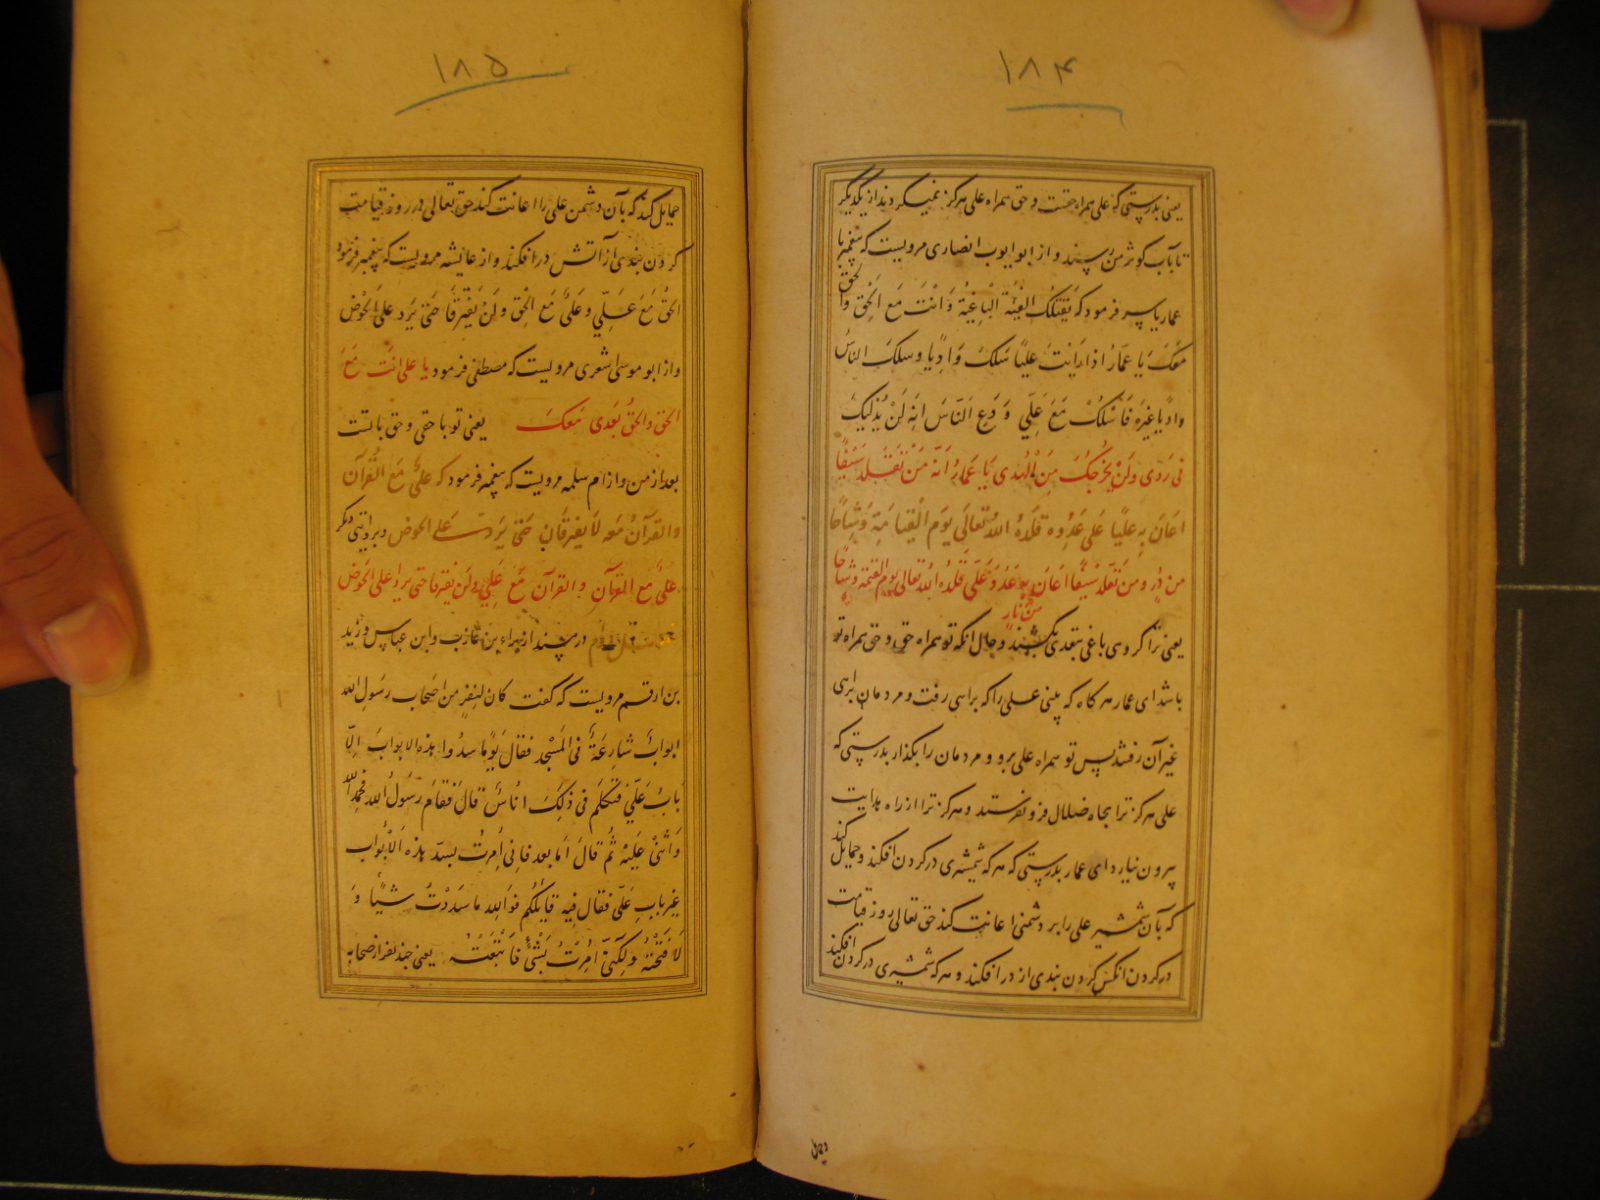 ۱۸۴
یعنی بدرستی که علی همراه حقست و حق همراه علی هرگز نمیگردید از یکدیگر
تا بآب کوثر من رسند و از ابو ایوب انصاری مرویست که پیغمبر با
عمار یاسر فرمود که تَقتلکَ الفِئَة الْباغِیَة وَانْتَ مَعَ الْحَق وَالحق
مَعَکَ یَا عَمّارُ اذا رَایتَ علیًا سَلکَ وَادِیا وسلکَ الناسُ
وادیًا غیرَه فَاسْلکْ مَعَ عَلیّ وَدَعِ النّاسَ اِنه لَنْ یُدْلیکَ
فی رَدی ولَنْ یخرجکَ مِنَ الْهُدی یَا عَمارُ اَنّه مَنْ تَقَلدَ سَیفًا
اعَانَ بِه علیًا عَلی عَدُوه قَلّدَهُ اللهُ تعالی یَوم الْقِیامَةِ وِشَاحًا
من دُر ومَن تَقَلدَ سَیفًا اعَانَ بِه عَدُوَ عَلی قَلّدَهُ اللهُ تعالی یوم القیمَة وِشَاحًا
مِنْ نار
یعنی ترا گروهی باغی بتعدی بکشند و حال آنکه تو همراه حق و حق همراه تو
باشد ای عمار هر گاه که ببینی علی را که براهی رفت و مردمان براهی
غیر آن رفتند پس تو همراه علی برو و مردمان را بگذار بدرستی که
علی هرگز ترا بچاه ضلال فرو نفرستد و هرگز ترا از راه هدایت
بیرون نیارد ای عمار بدرستی که هر که شمشیری در گردن افکند و حمایل کند
که بآن شمشیر علی را بر دشمنی اعانت کند حق تعالی روز قیامت
در گردن آنکس گردن بندی از در افکند و هر که شمشیری در گردن افکند
وحمایل
۱۸۵
حمایل کند که بآن دشمن علی را اعانت کند حق تعالی در روز قیامت
گردن بندی از آتش در افکند و از عایشه مرویست که پیغمبر فرمود
الحَقُ مَعَ عَلیّ وعَلیٌّ مَعَ الْحَق ولَنْ یَفْترِقَا حَتیٰ یَرِدا علی الْحَوْض
و از ابو موسی اشعری مرویست که مصطفی فرمود یا علی انتَ مَعَ
الحق والحَقُ بَعدی مَعکَ یعنی تو با حقی و حق با تست
بعد از من و از ام سلمه مرویست که پیغمبر فرمود که علیٌّ مَعَ الْقُرآن
والقرآنُ مَعه لَا یَفترقَانِ حَتیٰ یَرِدَا عَلی الحوض و بروایتی دیگر
علیٌّ مَع القرآن والقرآن مَعَ عَلیّ ولَن یَفترقا حَتی یردا علی الحَوض
در مسند از براء بن عازب و ابن عباس و زید
بن ارقم مرویست که گفت کان لِنفرٍ من اَصْحاب رسُول الله
ابوابٌ شارِعَةٌ فی المَسْجد فقال یَومًا سدُوا هذه الابوابَ اِلّا
بَابَ عَلیّ فتکلم فی ذلکَ اُناسٌ قالَ فقام رسُولُ الله فحمد الله
وَاَثْنیٰ عَلَیْه ثُم قالَ اَمّا بعد فانی اُمِرتُ بِسدّ هذه الابْوابِ
غیر باب علیّ فقال فِیه قایلکُم فو الله ما سَدَدْتُ شیئًا وَ
لا فتحتُهُ ولکنّی اُمِرْتُ بِشَیْءٍ فَاتّبَعْتُه یعنی چند نفر از صحابه